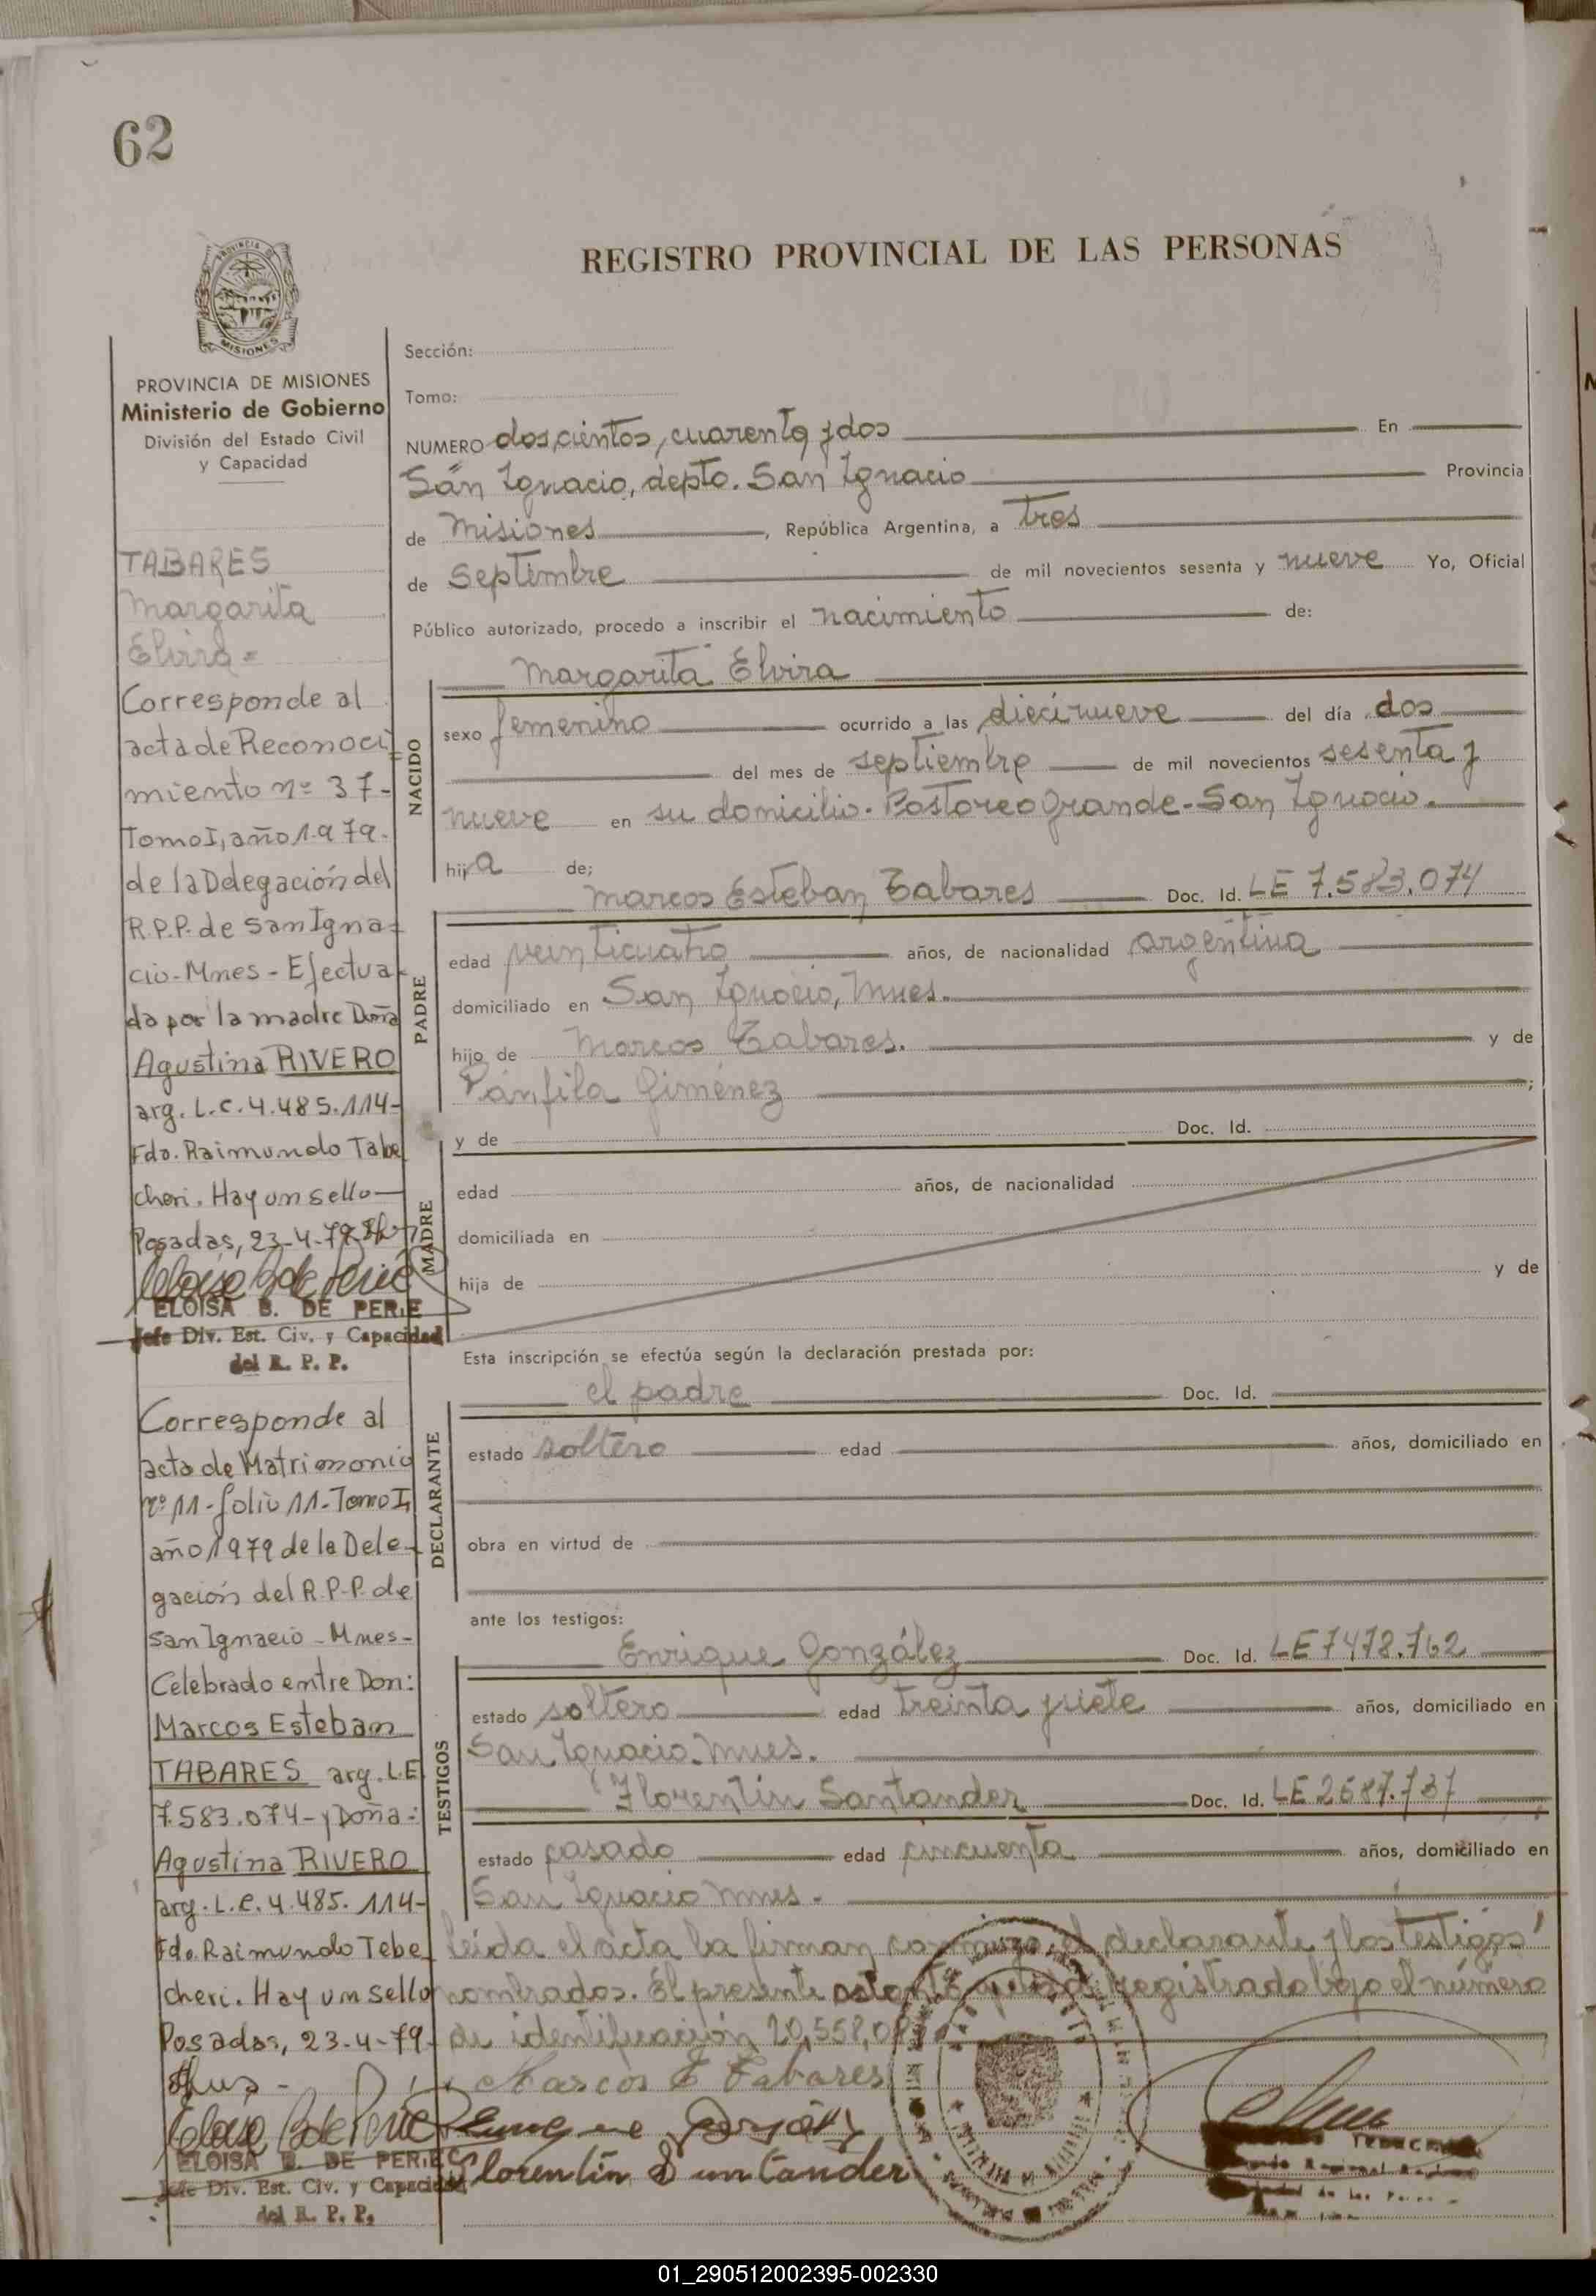 62
REGISTRO PROVINCIAL DE LAS PERSONAS
PROVINCIA
MISIONES
PROVINCIA DE MISIONES
Ministerio de Gobierno
División del Estado Civil
y Capacidad
TABARES
Margarita
Elvira=
Corresponde al
acta de Reconoci=
miento nº 37-
Tomo I, año 1.979.
de la Ddegación del
R.P.P. de San Igna=
cio-Mnes-Efectua-
da por la madre Doña
Agustina RIVERO
arg. L.C. 4.485.114-
Fdo. Raimundo Tabe
cheri. Hay un sello-
Posadas, 23-4-79
ELOISA B. DE PERIE
Jefe Div. Est. Civ. y Capacidad
del R. P. P.
Corresponde al
acta de Matrimonio
nº 11-folio 11-Tomo I,
año 1979 de la Dele-
gación del R.P.P. de
San Ignacio-Mnes-
Celebrado entre Don:
Marcos Esteban
TABARES arg. L.E
7.583.074-y Doña-:
Agustina RIVERO
arg. L.C. 4.485.114-
Fdo. Raimundo Tebe
cheri. Hay un sello
Posadas, 23-4-79-
ELOISA B. DE PERIE
Jefe Div. Est. Civ. y Capacidad
del R. P. P.
Sección:
Tomo:
NUMERO doscientos, cuarenta y dos En
San Ignacio, depto. San Ignacio Provincia
de Misiones, República Argentina, a tres
de Septimbre de mil novecientos sesenta y nueve Yo, Oficial
Público autorizado, procedo a inscribir el nacimiento de:
Margarita Elvira
NACIDO
sexo femenino ocurrido a las diecinueve del día dos
del mes de septiembre de mil novecientos sesenta y
nueve en su domicilio. Pastoreo Grande-San Ignacio.
hija de;
Marcos Esteban Tabares Doc. Id. LE 7.583.074
PADRE
edad veinticuatro años, de nacionalidad argentina
domiciliado en San Ignacio, Mnes.
hijo de Marcos Tabares. y de
Pánfila Giménez ;
MADRE
y de Doc. Id.
edad años, de nacionalidad
domiciliada en
hija de y de
Esta inscripción se efectúa según la declaración prestada por:
el padre Doc. Id.
DECLARANTE
estado soltero edad años, domiciliado en
obra en virtud de
ante los testigos:
Enrique González Doc. Id. LE 7478.762
TESTIGOS
estado soltero edad treinta y siete años, domiciliado en
San Ignacio. Mnes.
Florentin Santander Doc. Id. LE 2587.737
estado casado edad cincuenta años, domiciliado en
San Ignacio Mnes.
Leída el acta la firman conmigo, el declarante y los testigos
nombrados. El presente registrado bajo el número
de identificación 20,558,0
Marcos E Tabares
Florentin Santander
01_290512002395-002330